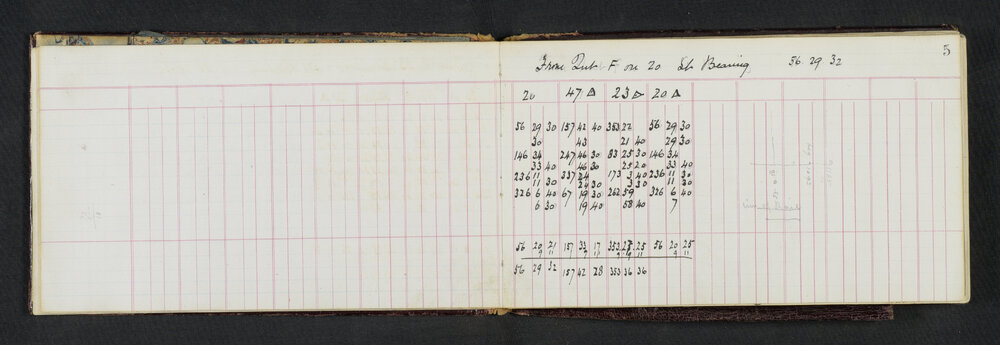 5
From Rut F on 20 St Bearing 56 29 32
20 47 △ 23 △ 20 △
56 29 30 157 42 40 353 22 56 29 30
30 43 21 40 29 30
146 34 247 46 30 83 25 30 146 34
33 40 46 30 25 20 33 40
236 11 337 24 173 3 40 236 11 30
11 30 24 30 3 30 11 30
326 6 40 67 19 30 262 59 326 6 40
6 30 19 40 58 40 7
56 20 21 157 33 17 353 27 25 56 20 25
9 11 9 11 9 11 9 11
56 29 32 157 42 28 353 36 36